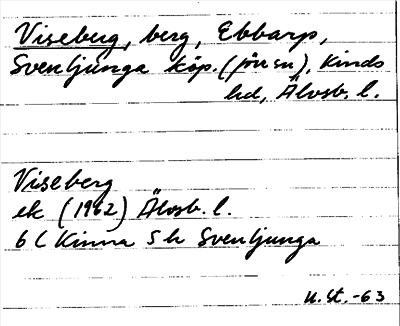 Viseberg, berg, Ebbarp,
Svenljunga köp. (förs:n), Kinds
hd, Älvsb. l.
Viseberg
ek (1962) Älvsb. l.
6 C Kinna 5 h Svenljunga
U. St. -63